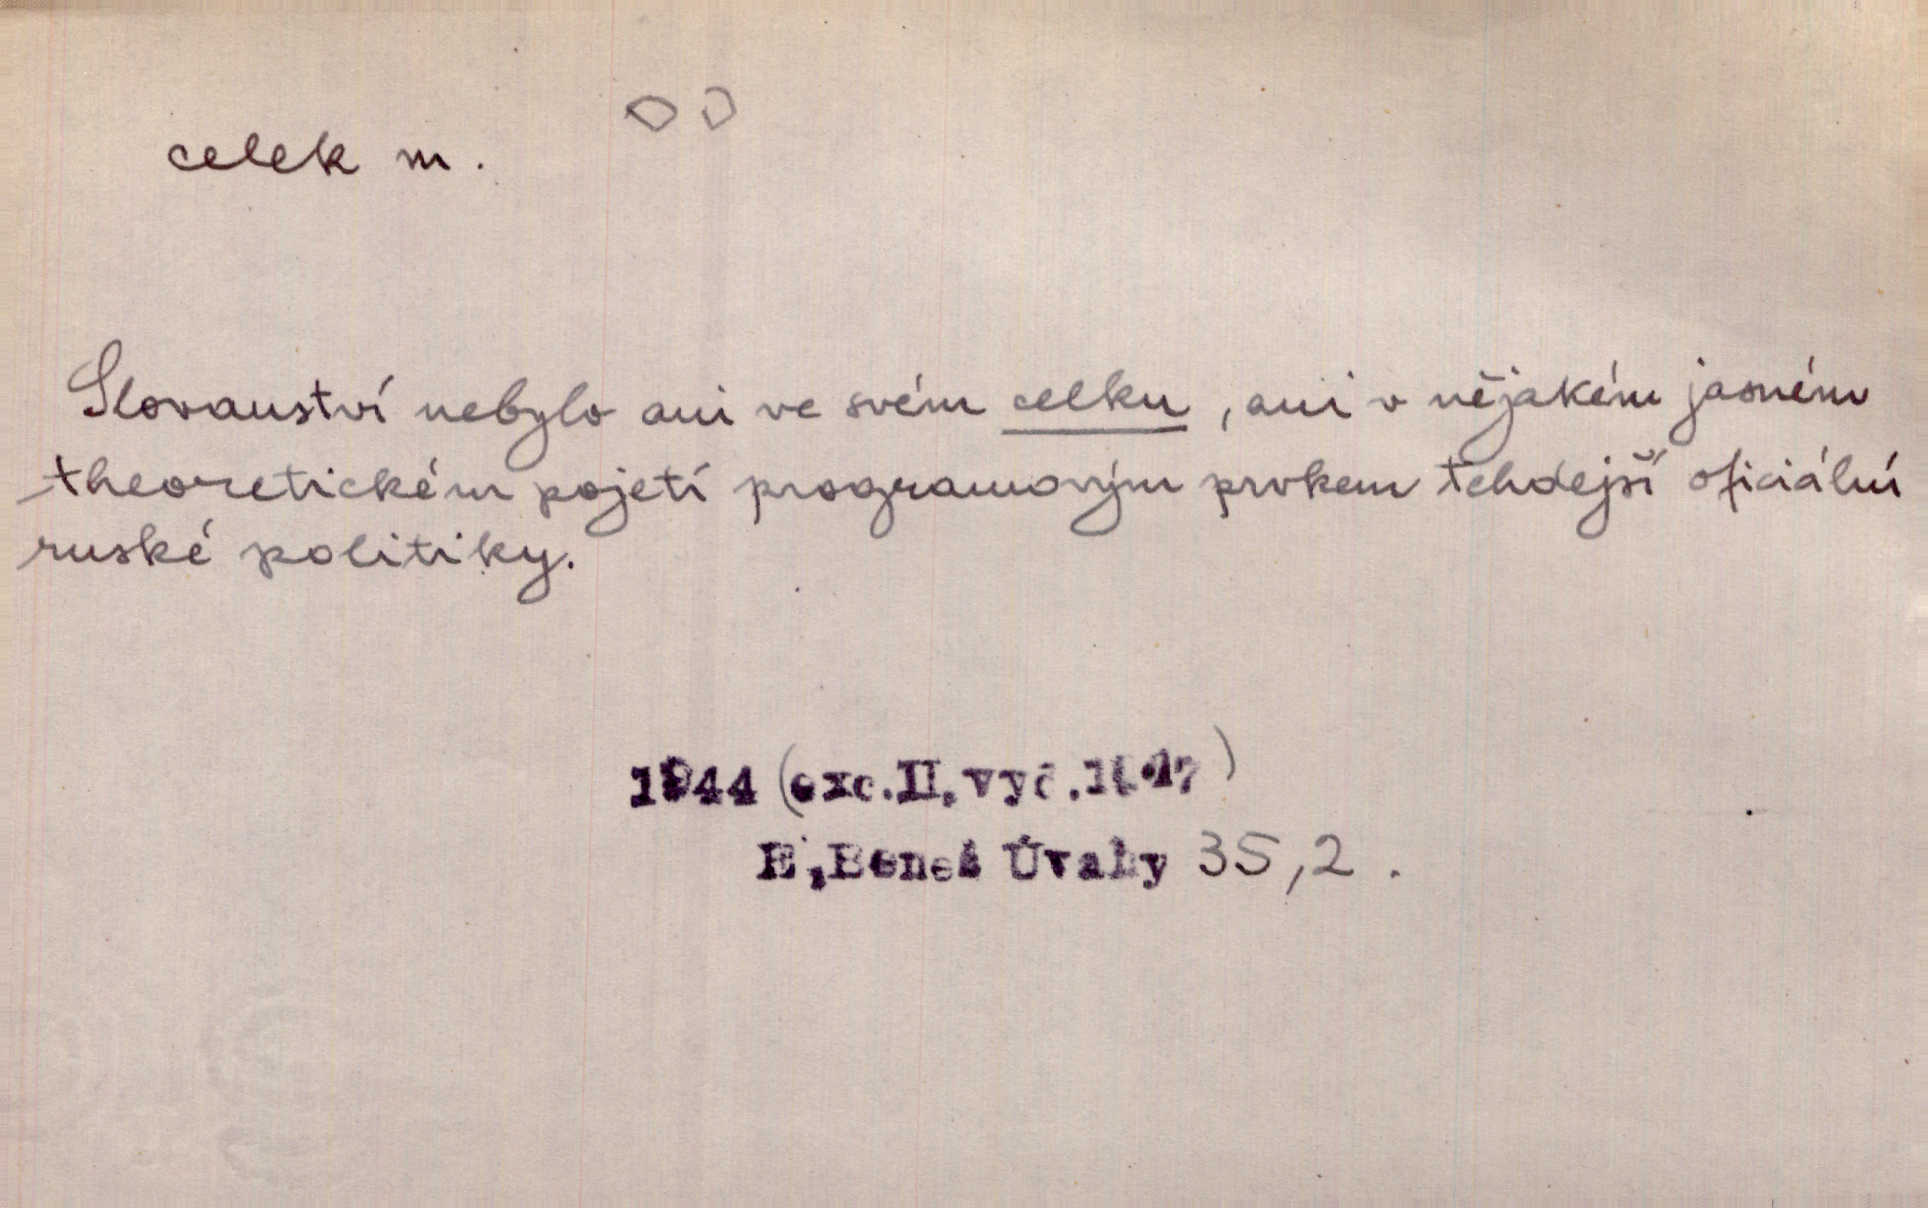 celek m.
Slovanství nebylo ani ve svém celku, ani v nějakém jasném
theoretickém pojetí programovým prvkem tehdejší oficiální
ruské politiky.
1944 (exc.II.vyč.1947)
E.Beneš Úvahy 35,2.